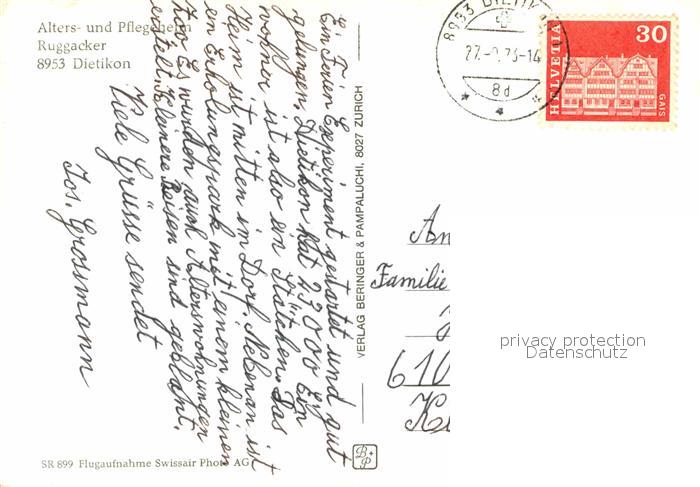 Alters- und Pflegeheim
Ruggacker
8953 Dietikon
8953 DIETIK
27.- .73-14
8d
HELVETIA
30
GAIS
Ein Ferien Experiment gestartet und gut
gelungen. Dietikon hat 23000 Ein
wohner ist also ein Städtchen. Das
Heim ist mitten im Dorf. Nebenan ist
ein Erholungspark mit einem kleinen
Es wurden auch Alterswohnungen
erstellt. Kleinere Reisen sind geplant.
Viele Grüsse sendet
Jos. Grossmann
VERLAG BERINGER & PAMPALUCHI, 8027 ZÜRICH
An
Familie
610
privacy protection
Datenschutz
SR 899 Flugaufnahme Swissair Photo AG
B+P